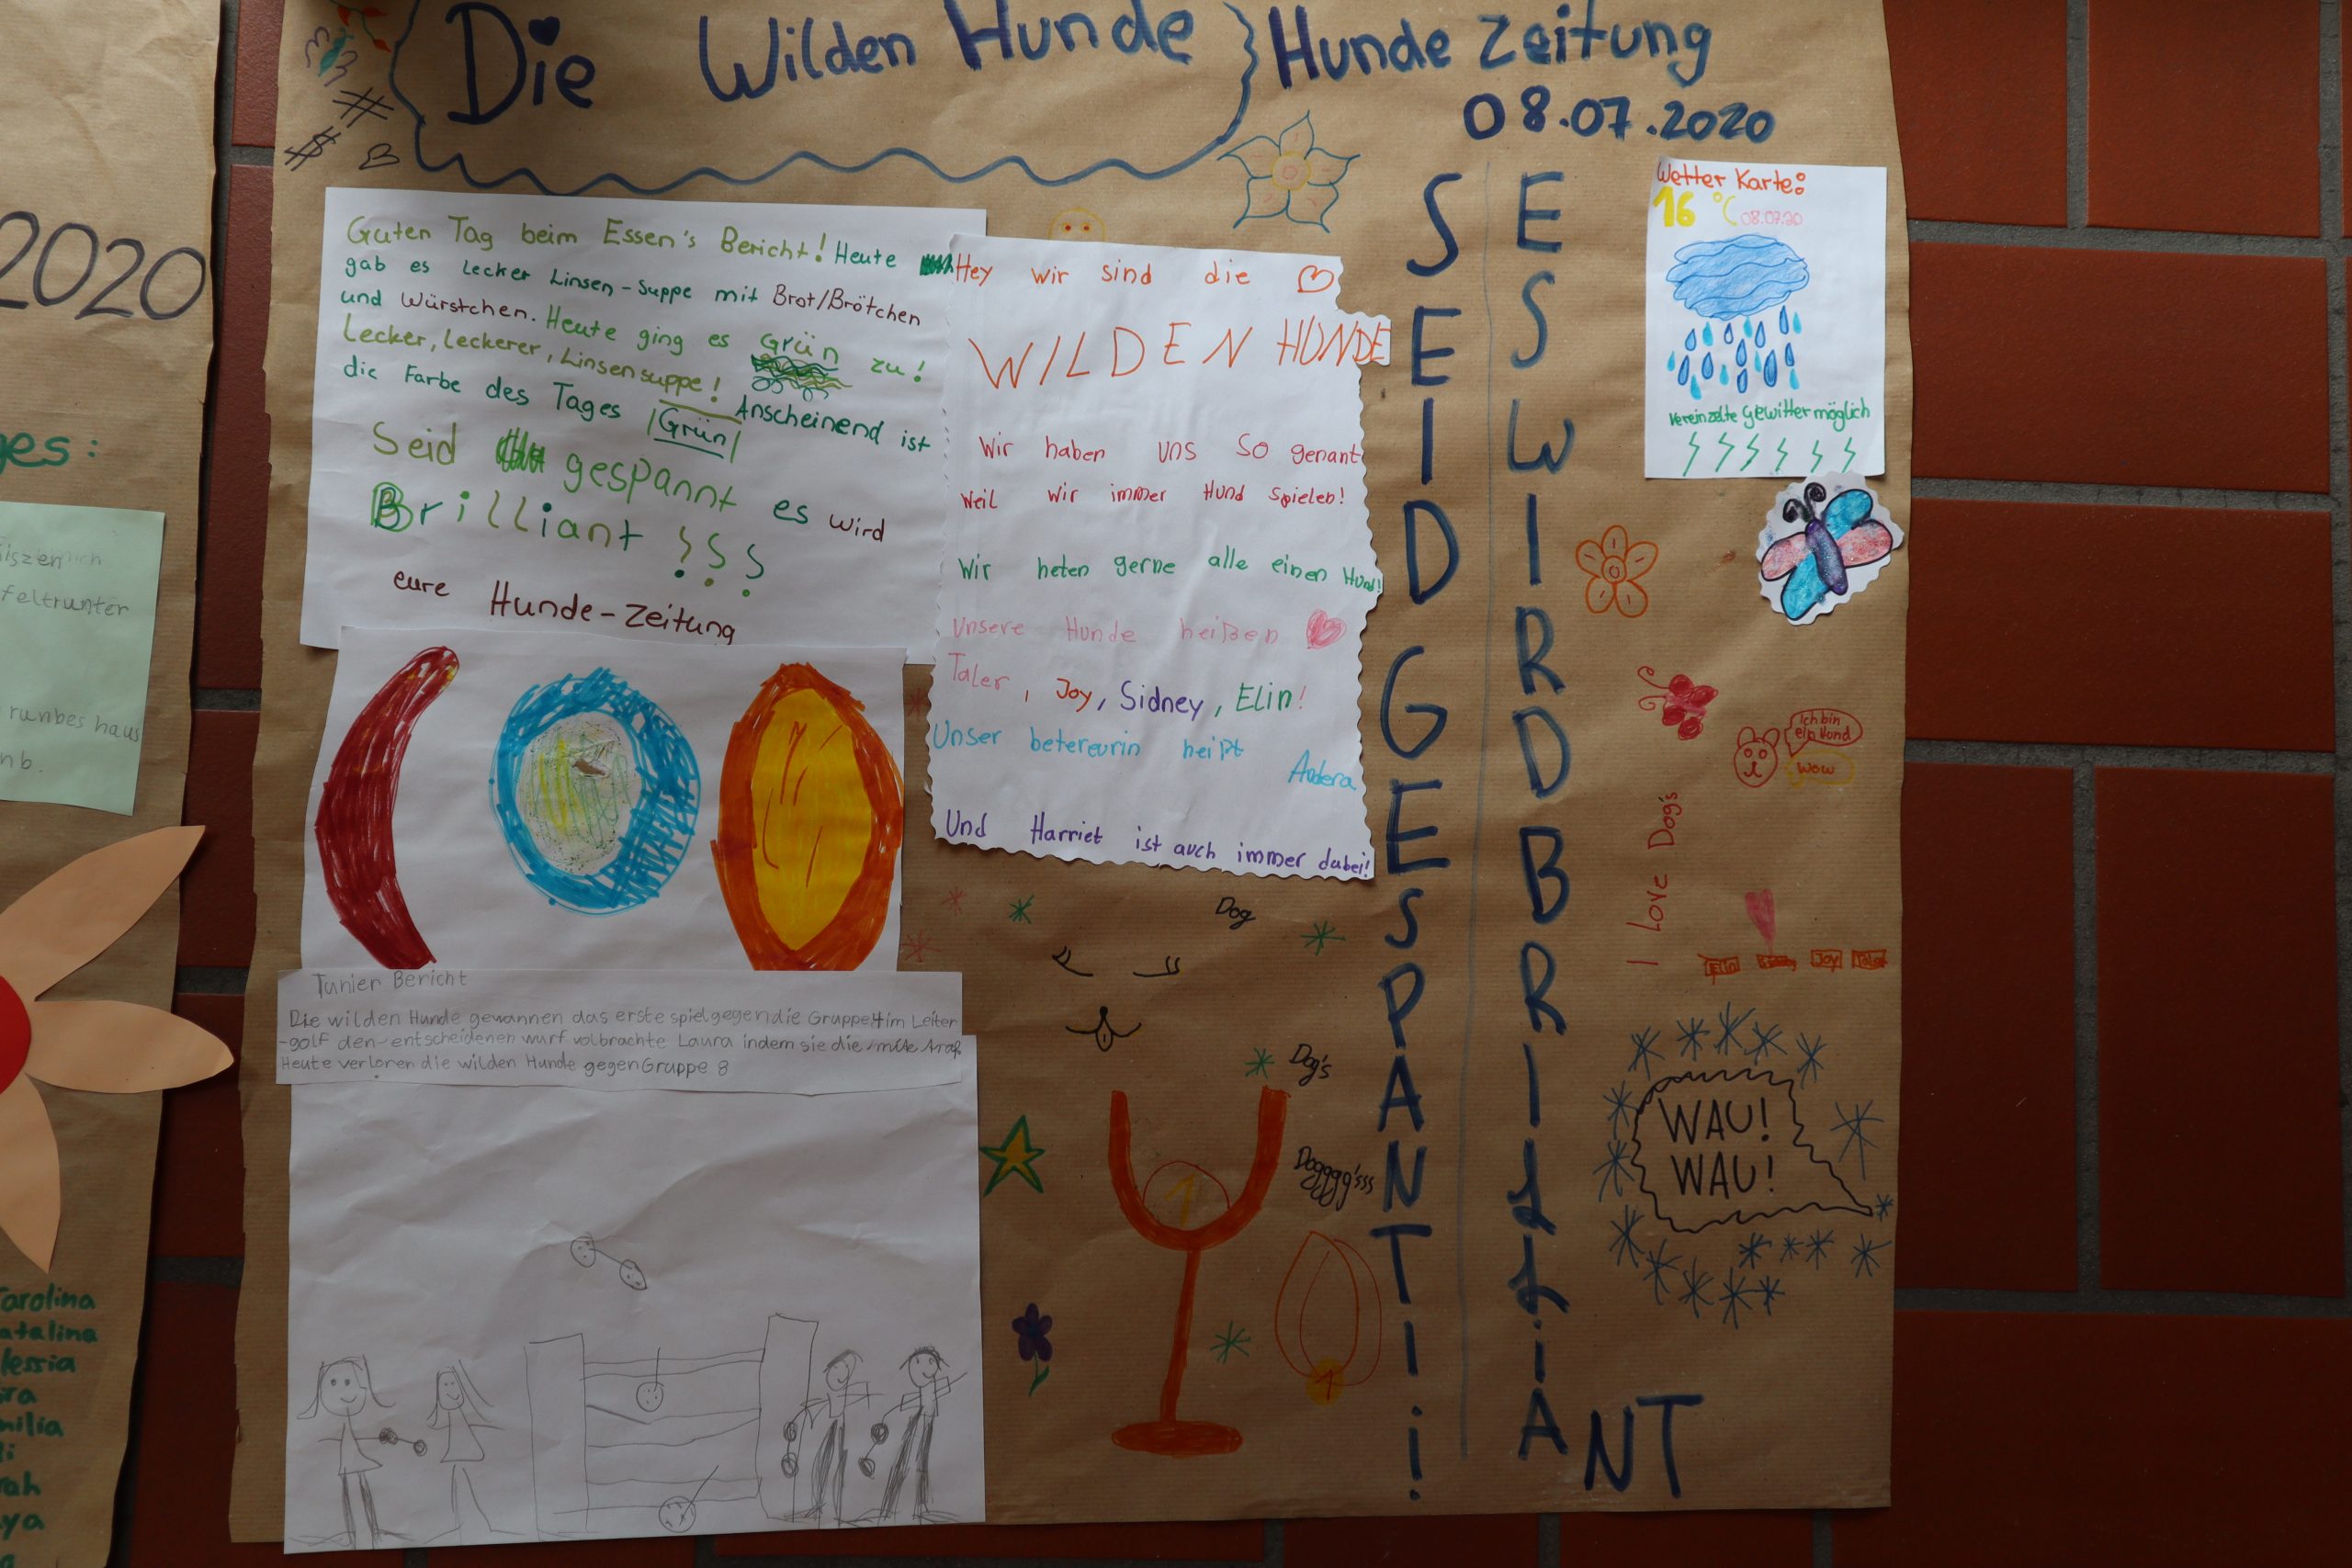 Die Wilden Hunde
Hunde Zeitung
08.07.2020
Guten Tag beim Essen's Bericht! Heute
gab es lecker Linsen-Suppe mit Brot/Brötchen
und Würstchen. Heute ging es Grün zu!
Lecker, Leckerer, Linsensuppe! Anscheinend ist
die Farbe des Tages |Grün|
Seid gespannt es wird
Brilliant !!!
eure Hunde-Zeitung
Hey wir sind die
WILDEN HUNDE
Wir haben uns so genant
weil wir immer Hund spielen!
Wir heten gerne alle einen Hund!
Unsere Hunde heißen
Taler, Joy, Sidney, Elin!
Unser betereurin heißt
Andera
Und Harriet ist auch immer dabei!
Tunier Bericht
Die wilden Hunde gewannen das erste spiel gegen die Gruppe 4 im Leiter
-golf den entscheidenen wurf volbrachte Laura indem sie die mitte traf.
Heute verloren die wilden Hunde gegen Gruppe 8
SEID GESPANTI!
ES WIRD BRILLiANT
Wetter Karte:
16 °C 08.07.20
vereinzelte gewitter möglich
Ich bin
ein Hund
Wow
I Love Dog's
Elin
Joy
Taler
WAU!
WAU!
Dog
Dog's
Dogggg'sss
1
1
2020
ges:
feltrunter
runbes haus
nb.
arolina
atalina
lessia
ra
milia
i
rah
ya